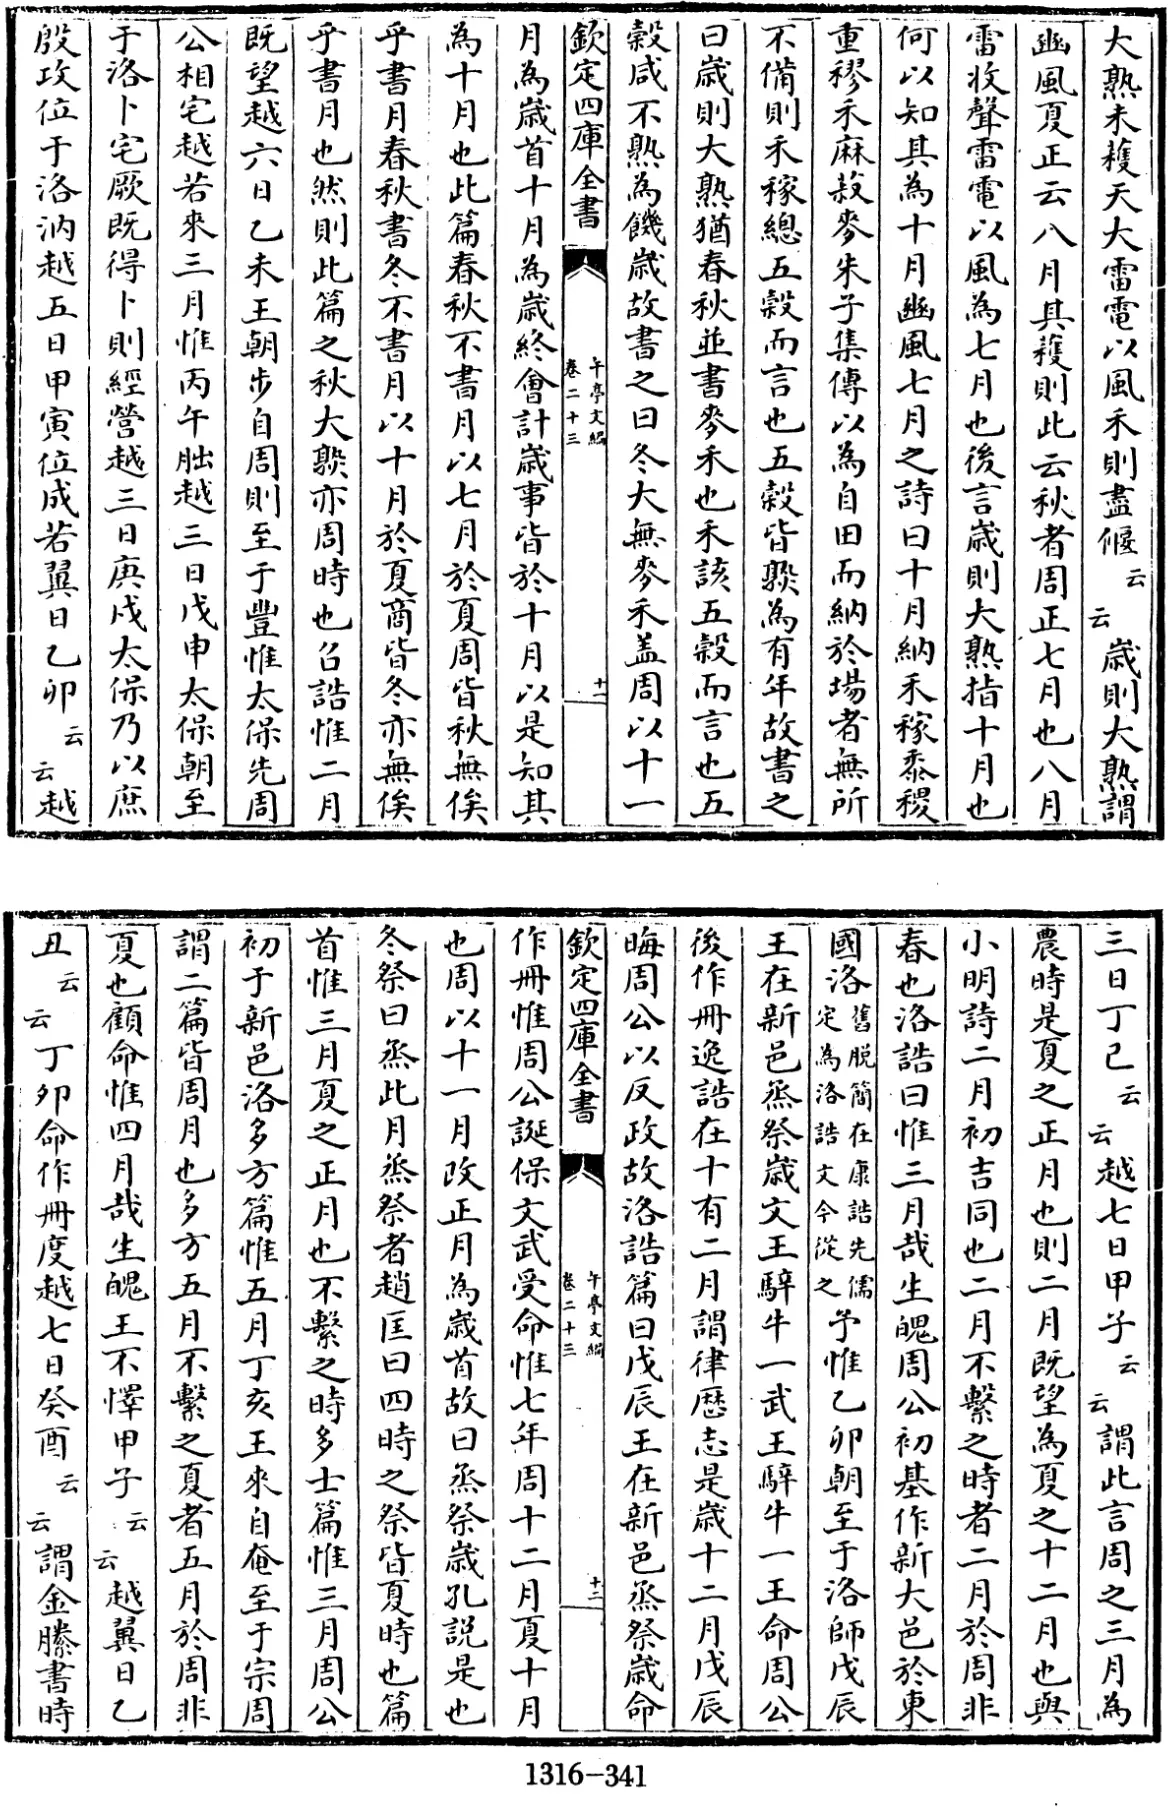 大熟未穫天大雷電以風禾則盡偃云云歲則大熟謂
豳風夏正云八月其穫則此云秋者周正七月也八月
雷收聲雷電以風為七月也後言歲則大熟指十月也
何以知其為十月豳風七月之詩曰十月納禾稼黍稷
重穋禾麻菽麥朱子集傳以為自田而納於場者無所
不備則禾稼總五穀而言也五穀皆熟為有年故書之
曰歲則大熟猶春秋並書麥禾也禾該五穀而言也五
穀咸不熟為饑歲故書之曰冬大無麥禾盖周以十一
欽定四庫全書
午亭文編
卷二十三
十一
月為歲首十月為歲終會計歲事皆於十月以是知其
為十月也此篇春秋不書月以七月於夏周皆秋無俟
乎書月春秋書冬不書月以十月於夏商皆冬亦無俟
乎書月也然則此篇之秋大熟亦周時也召誥惟二月
既望越六日乙未王朝步自周則至于豐惟太保先周
公相宅越若來三月惟丙午朏越三日戊申太保朝至
于洛卜宅厥既得卜則經營越三日庚戌太保乃以庶
殷攻位于洛汭越五日甲寅位成若翼日乙卯云云越
三日丁巳云云越七日甲子云云謂此言周之三月為
農時是夏之正月也則二月既望為夏之十二月也與
小明詩二月初吉同也二月不繫之時者二月於周非
春也洛誥曰惟三月哉生魄周公初基作新大邑於東
國洛舊脫簡在康誥先儒定為洛誥文今從之予惟乙卯朝至于洛師戊辰
王在新邑烝祭歲文王騂牛一武王騂牛一王命周公
後作冊逸誥在十有二月謂律歷志是歲十二月戊辰
晦周公以反政故洛誥篇曰戊辰王在新邑烝祭歲命
欽定四庫全書
午亭文編
卷二十三
十二
作冊惟周公誕保文武受命惟七年周十二月夏十月
也周以十一月改正月為歲首故曰烝祭歲孔說是也
冬祭曰烝此月烝祭者趙匡曰四時之祭皆夏時也篇
首惟三月夏之正月也不繫之時多士篇惟三月周公
初于新邑洛多方篇惟五月丁亥王來自奄至于宗周
謂二篇皆周月也多方五月不繫之夏者五月於周非
夏也顧命惟四月哉生魄王不懌甲子云云越翼日乙
丑云云丁卯命作冊度越七日癸酉云云謂金縢書時
1316-341